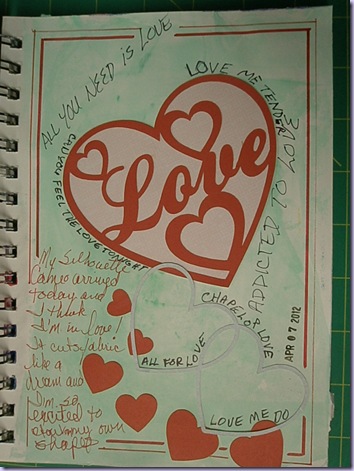 ALL YOU NEED IS LOVE
LOVE ME TENDER
ADDICTED TO LOVE
Love
CAN YOU FEEL THE LOVE TONIGHT
CHAPEL OF LOVE
My Silhouette
Cameo arrived
today and
I think
I'm in love!
It cuts fabric
like a
dream and
I'm so
excited to
own
shapes
ALL FOR LOVE
LOVE ME DO
APR 07 2012